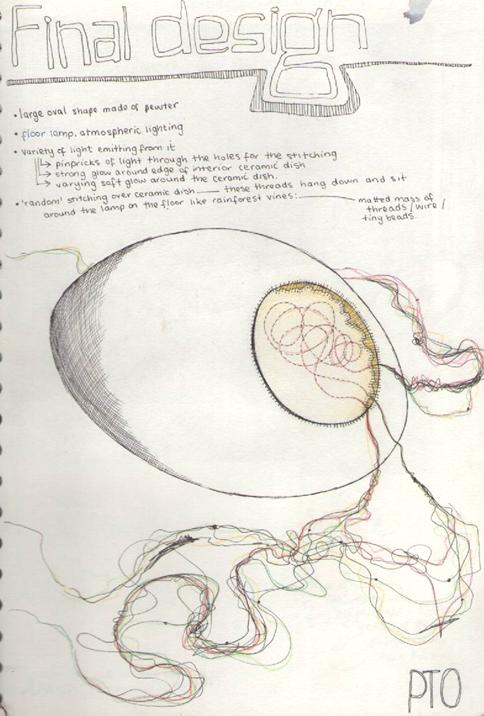 Final design
• large oval shape made of pewter
• floor lamp, atmospheric lighting
• variety of light emitting from it
pinpricks of light through the holes for the stitching
strong glow around edge of interior ceramic dish
varying soft glow around the ceramic dish.
• 'random' stitching over ceramic dish — these threads hang down and sit
around the lamp on the floor like rainforest vines: — matted mass of
threads/wire/
tiny beads.
PTO